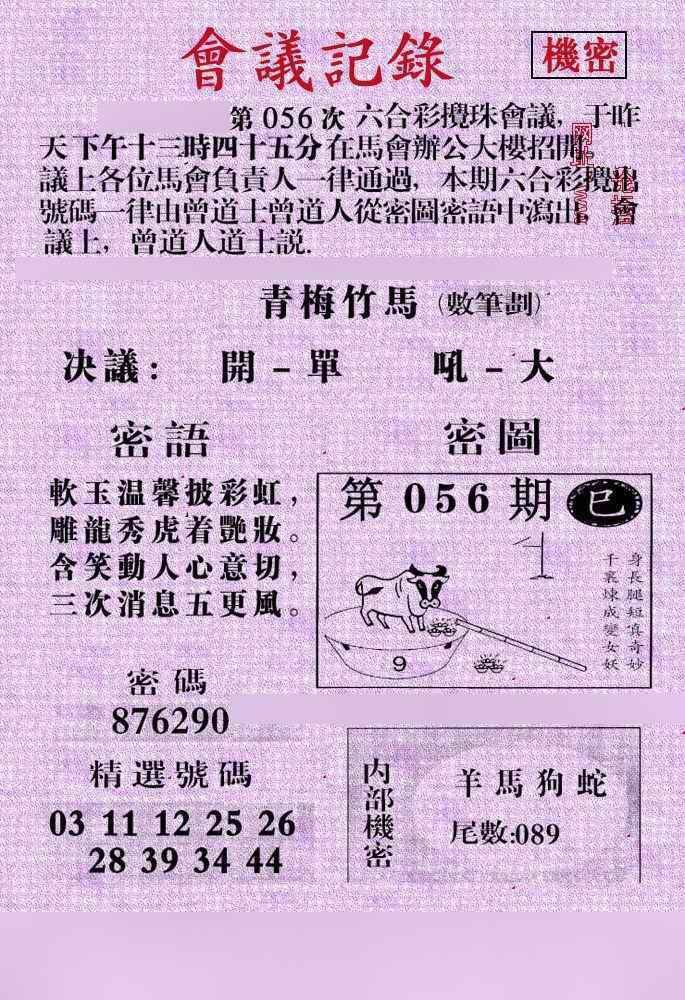 會議記錄
機密
第 056 次 六合彩攪珠會議, 于昨
天下午十三時四十五分在馬會辦公大樓招開
議上各位馬會負責人一律通過, 本期六合彩攪出
號碼一律由曾道士曾道人從密圖密語中瀉出, 會
議上, 曾道人道士説.
青梅竹馬 (數筆劃)
决議: 開 - 單 吼 - 大
密語
軟玉温馨披彩虹,
雕龍秀虎着艷妝。
含笑動人心意切,
三次消息五更風。
密圖
第 056 期 巳
身長腿短真奇妙
千裏煉成變女妖
9
密碼
876290
精選號碼
03 11 12 25 26
28 39 34 44
内部機密
羊馬狗蛇
尾數:089